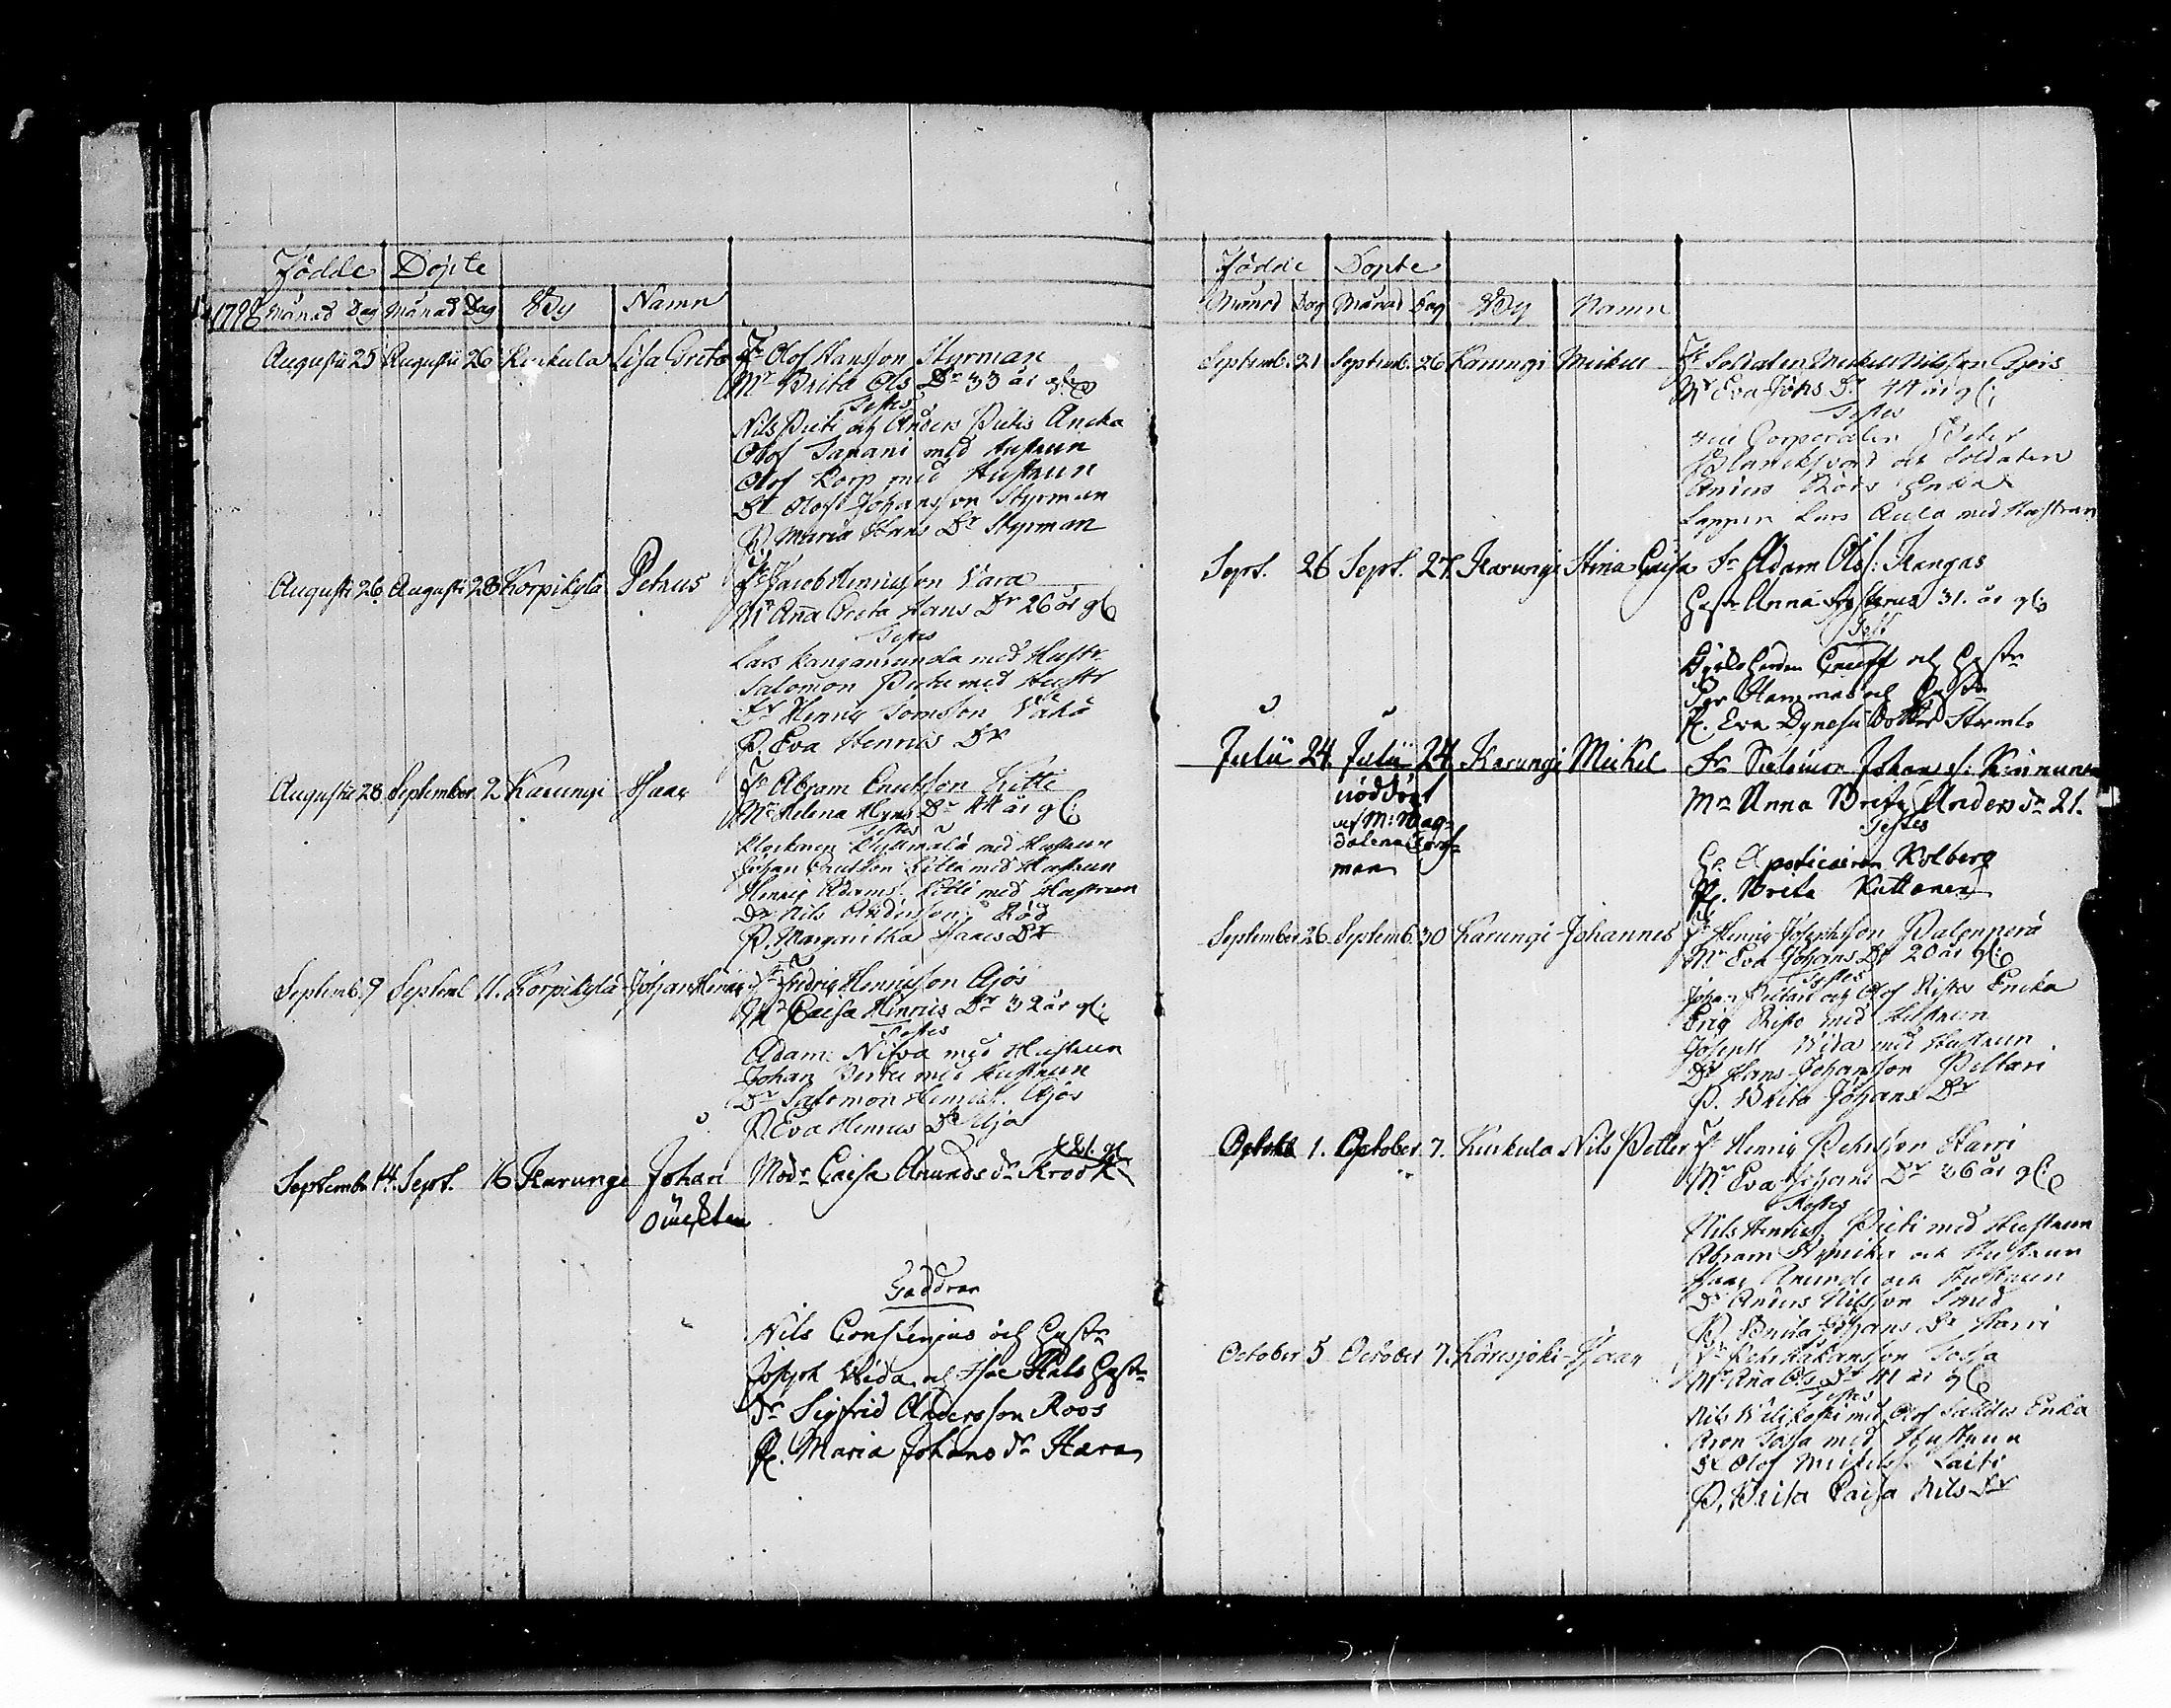 Födde Döpte
1798 Månad Dag Månad Dag By Namn
Augustii 25 Augustii 26 Kukula Lisa Greta Fr Olof Hansson Styrman
Mr Brita Ols Dr 33 år gl:
Testes
Nils Pieti och Anders Pietis Encka
Olof Tapani med Hustrun
Olof Korp med Hustrun
Dr Olof Johansson Styrman
P. Maria Hans Dr Styrman
Augusti 26 Augusti 28 Korpikylä Petrus Fr Jacob Henricsson Vara
Mr Aña Greta Hans Dr 26 år gl
Testes
Lars Kangamunda med Hustr
Salomon med Hustr
Dr Henric
P. Eva Henrics Dr
Augustii 28 September 2 Karungi Isaac Fr Abram Ericsson Kitti
Mr Helena Dr 44 år gl:
Testes
Klockaren Kyllmälä med Hustrun
Johan Kitti med Hustrun
Henric Adams. Kitti med Hustrun
Dr Nils Andersson Röd
P. Margaritha Hans Dr
Septemb. 9 Septemb 11. Korpikylä Johan Henric Fr Fridric Henricsson Ajos
Mr Caisa Henrics Dr 32 år gl:
Testes
Adam Niswa med Hustrun
Johan med Hustrun
Dr Salomon Henricss. Ajos
P. Eva Henrics Dr Ajos
September 14. Sept. 16 Karungi Johan Modr Caisa Anunds dr Krook
oäckten
Faddrar
Nils Constenius och Hustr
Joseph Wida och Hustr
Dr Sigfrid Andersson Roos
P. Maria Johans dr Hara
Födde Döpte
Månad Dag Månad Dag By Namn
Septemb. 21 Septemb. 26 Karungi Mickell Fr Soldaten Mickell Nilsson
Mr Eva Johs Dr 44 år gl:
Testes
Corporalen Peter
och Soldaten
Anders Enka
Lappen Lars Aula med Hustrun
Sept. 26 Sept. 27. Karungi Stina Caisa Fr Adam Ols s: Kangas
Hustr Anna 31. år gl:
Test
och Hustr
Per Hammar och Hustr
P. Eva
Julii 24. Julii 24. Karungi Mickel Fr Salomon Johan s: Kinnunen
nöddöpt Mr Anna Brita Anders dr 21.
af M: Mag= Testes
dalena Hr Apotecairen Kolberg
man P. Brita Kuttainen
September 26. Septemb. 30 Karungi Johannes Fr Henric Josephsson Palonperä
Mr Eva Johans Dr 20 år gl:
Testes
Johan Peltari och Olof Ristos Encka
Eric Risto med Hustrun
Joseph Wida med Hustrun
Dr Hans Johansson Peltari
P. Brita Johans Dr
October 1. October 7. Kukula Nils Petter Fr Henric Pehrsson Harri
Mr Eva Johans Dr 36 år gl:
Testes
Nils Henricss Pieti med Hustrun
Abram och Hustrun
Isaac Anundi och Hustrun
Dr Anders Nilsson Smed
P. Brita Johans Dr Harri
October 5 October 7. Karesjoki Isaac Fr Pehr Håkansson Tossa
Mr Aña Ols Dr 41 år gl
Testes
Nils Välikoski med Olof Enka
Aron Tossa med Hustrun
Dr Olof Laiti
P. Brita Caisa Nils Dr